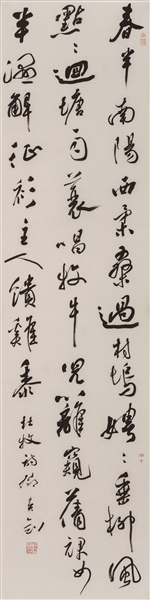 春半南陽西柔桑過村塢娉〻垂柳風
點〻迴塘雨蓑唱牧牛兒籬窺蒨裙女
半濕解征衫主人饋雞黍
杜牧詩